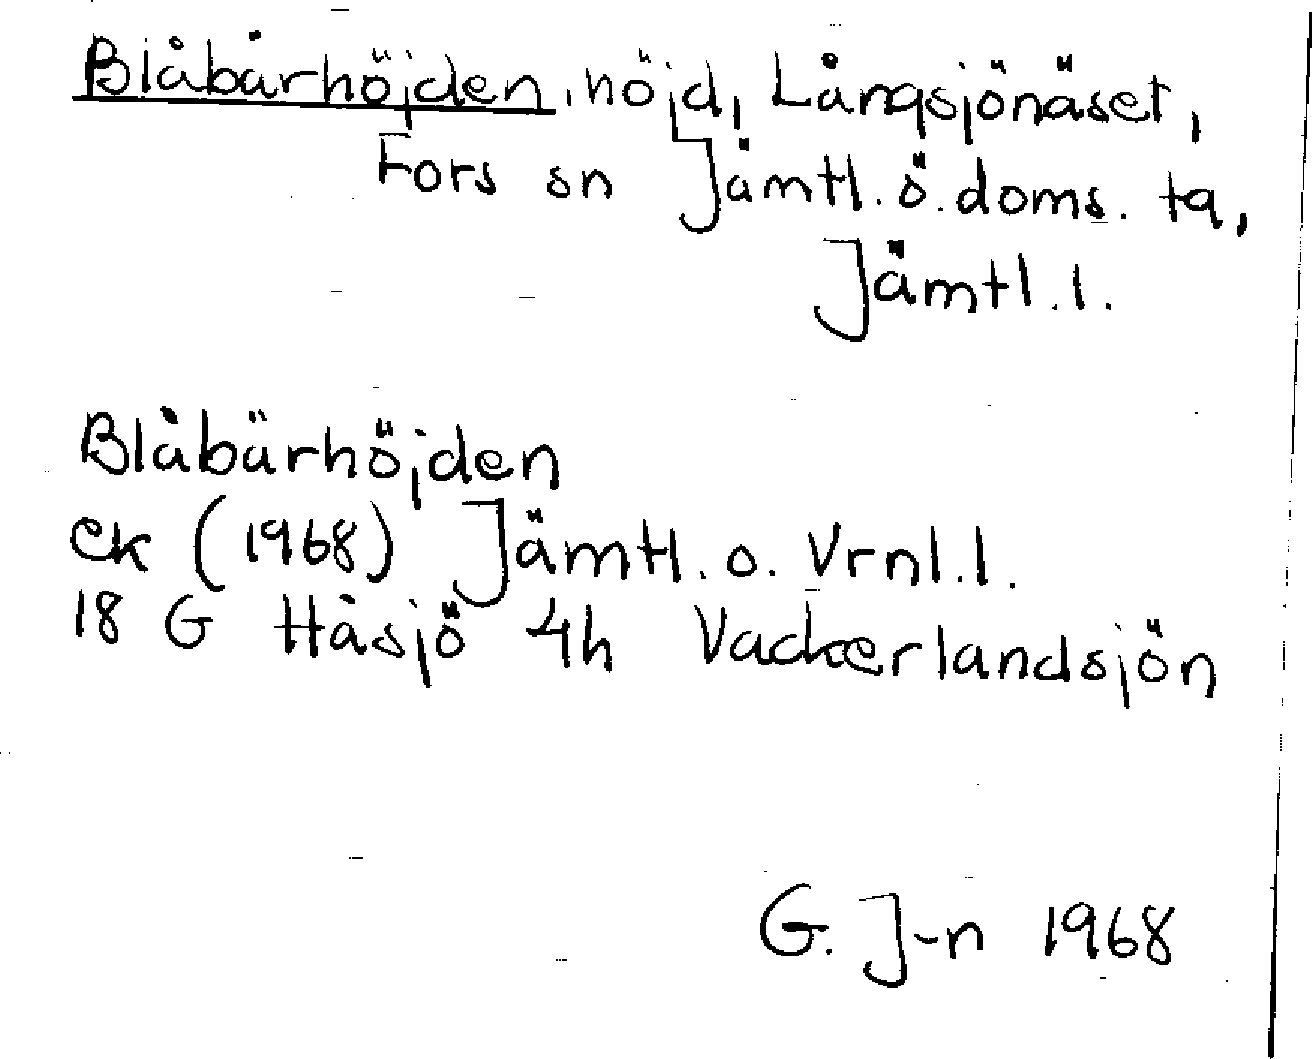 Blåbärhöjden, höjd, Långsjönäset,
Fors sn Jämtl. ö. doms. tg,
Jämtl. l.
Blåbärhöjden
ek (1968) Jämtl. o. Vrnl. l.
18 G Håsjö 4h Vackerlandsjön
G. J-n 1968